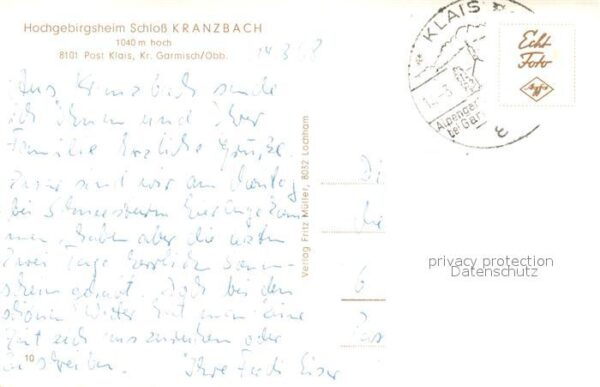 Hochgebirgsheim Schloß KRANZBACH
1040 m hoch
8101 Post Klais, Kr. Garmisch/Obb.
14.3.68
Aus Kranzbach sende
ich Ihnen und Ihrer
Familie herzliche Grüße.
sind wir am Montag
bei Schneesturm hier angekom
men, haben aber die letzten
zwei Tage herrlichen Sonn-
schein gehabt. Doch bei dem
schönen Wetter hat man keine
Zeit sich auszuruhen oder
zu schreiben. Ihre
10
Verlag Fritz Müller, 8032 Lochham
KLAIS
Echt
Foto
Agfa
privacy protection
Datenschutz